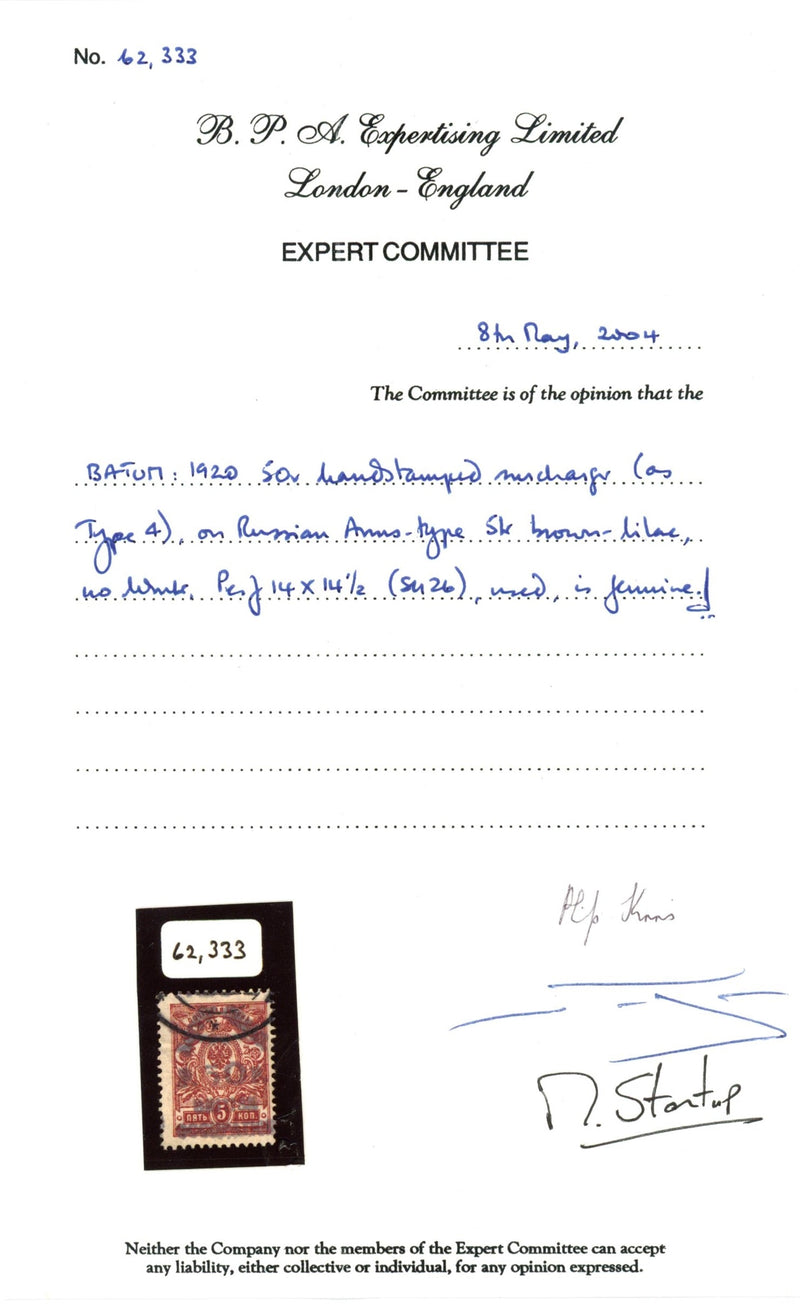 No. 62,333
B. P. A. Expertising Limited
London - England
EXPERT COMMITTEE
8th May, 2004
The Committee is of the opinion that the
BATUM: 1920 50r handstamped surcharge (as
Type 4), on Russian Arms-type 5k brown-lilac,
no Wmk. Perf 14 X 14½ (SG 26), used, is genuine.
62,333
ПЯТЬ 5 КОП.
M. Startup
Neither the Company nor the members of the Expert Committee can accept
any liability, either collective or individual, for any opinion expressed.